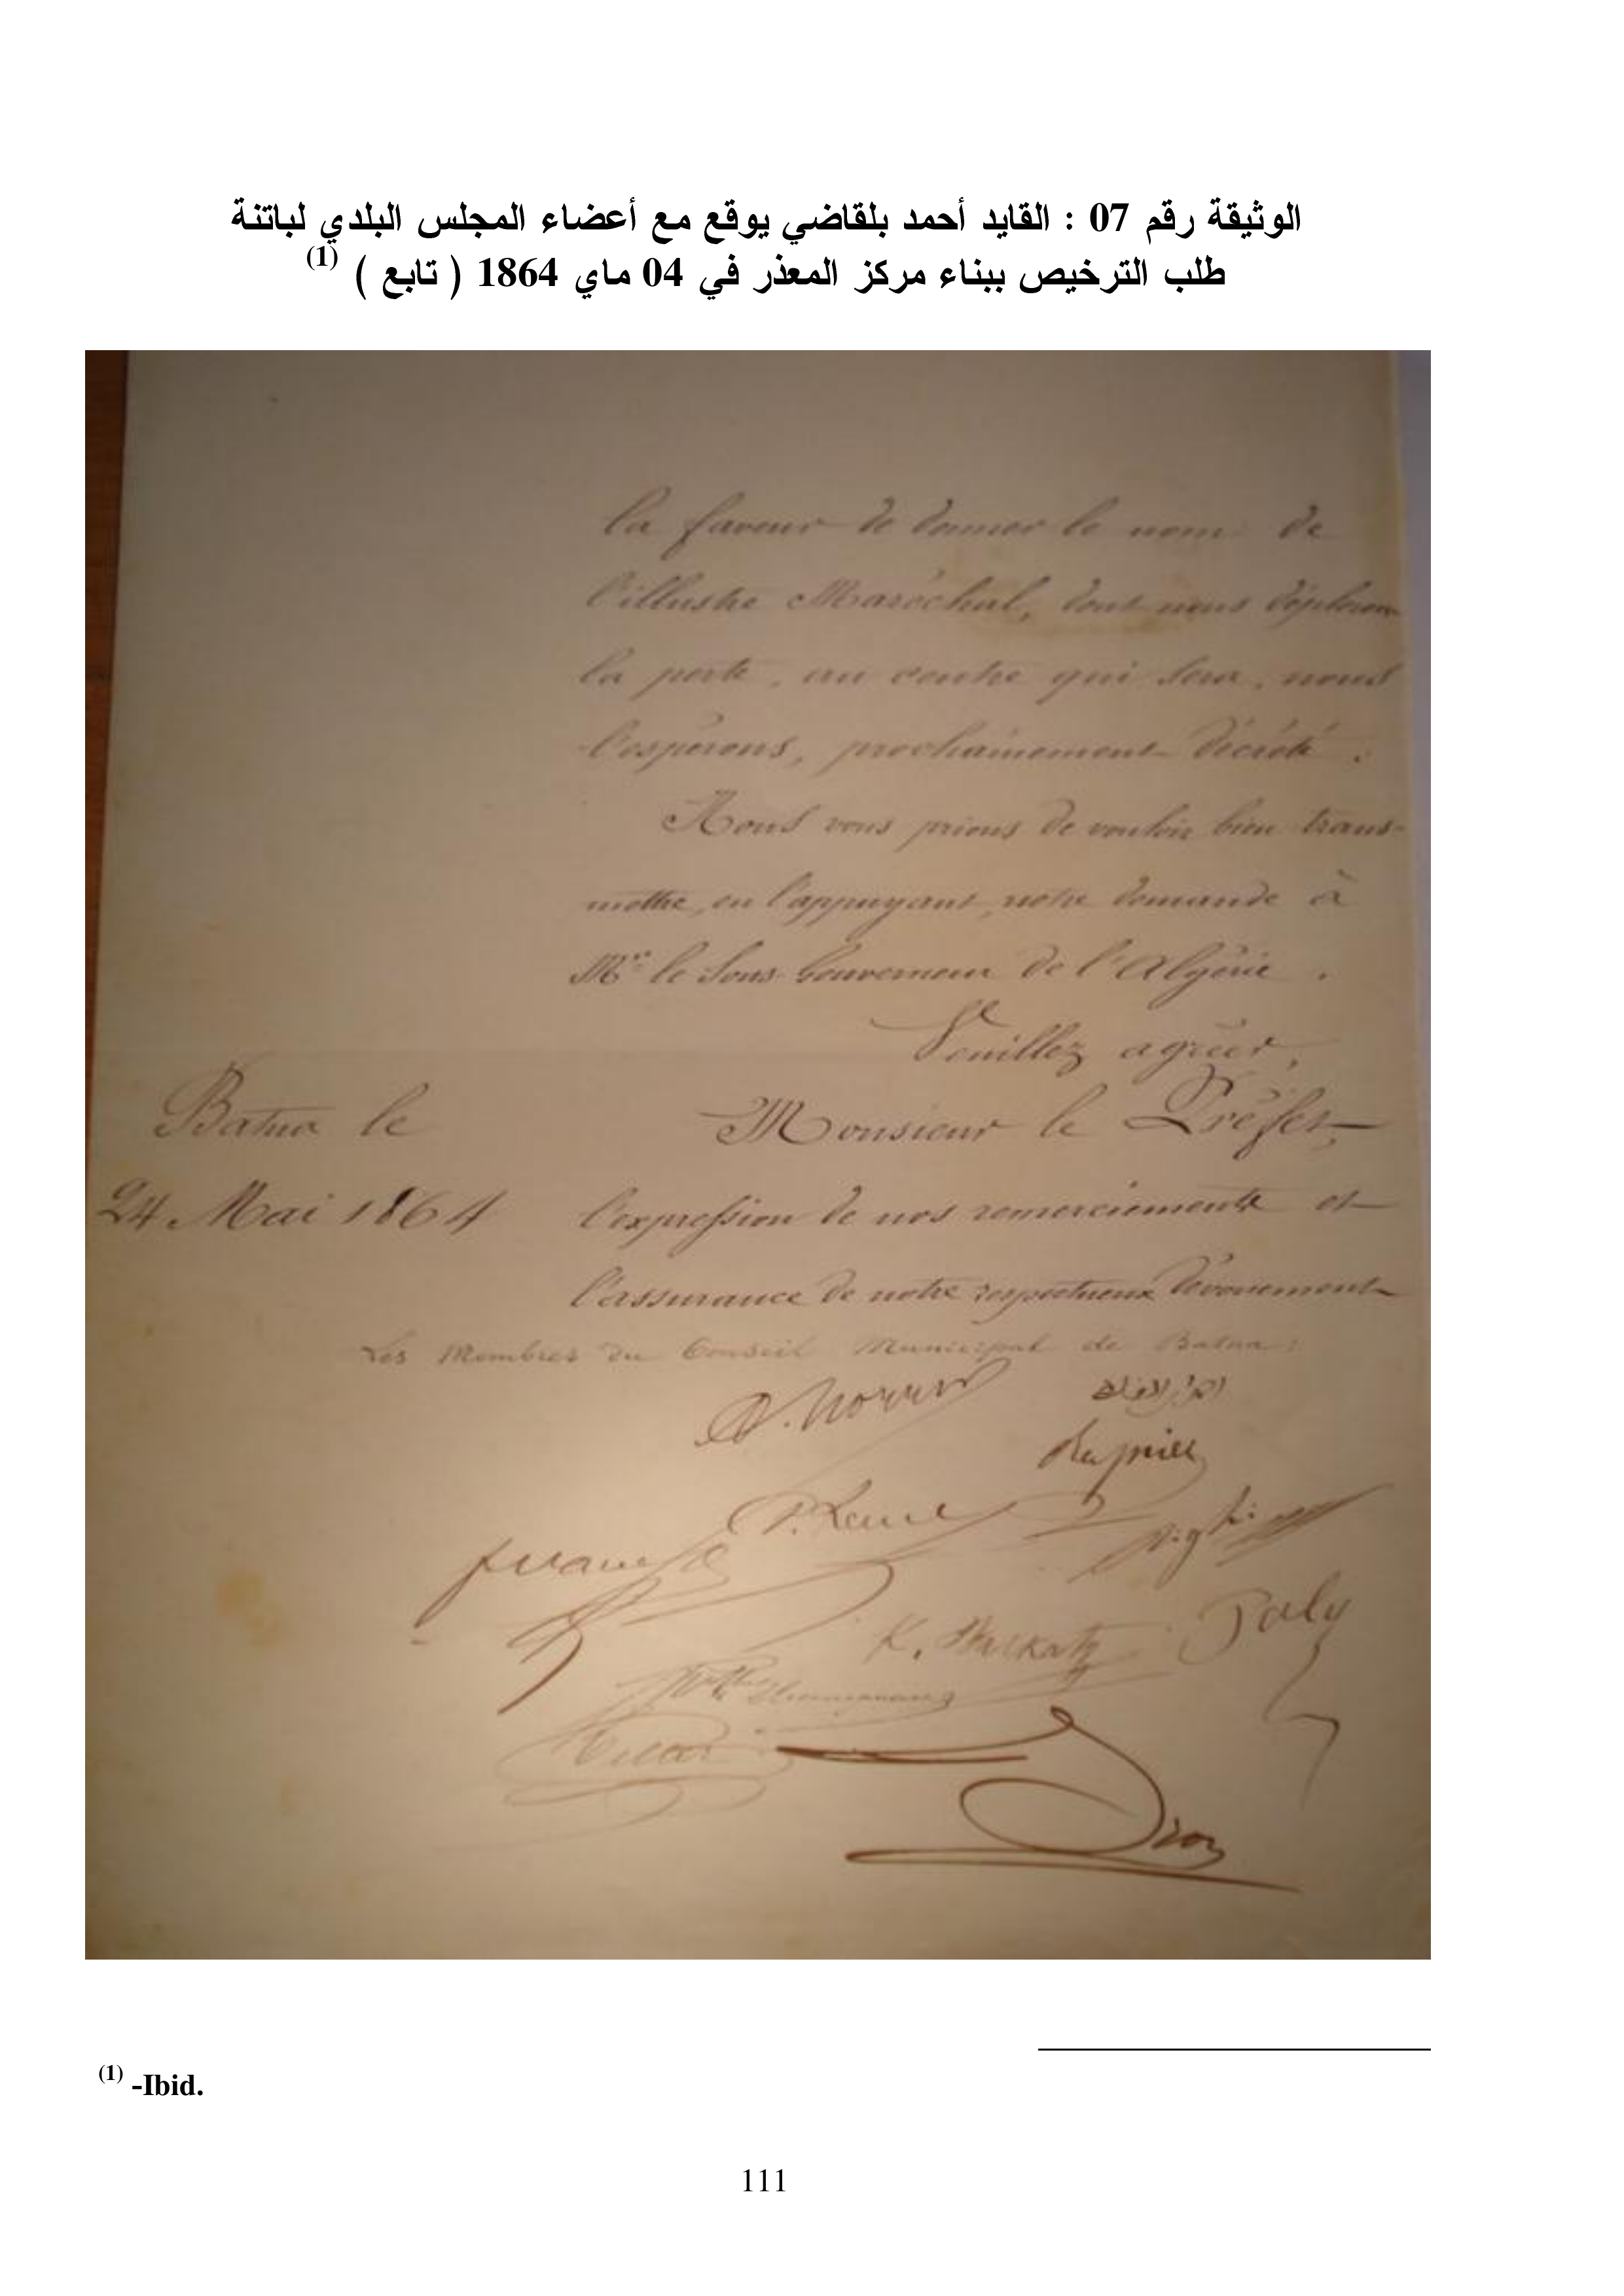 الوثيقة رقم 07 : القايد أحمد بلقاضي يوقع مع أعضاء المجلس البلدي لباتنة
طلب الترخيص ببناء مركز المعذر في 04 ماي 1864 ( تابع ) (1)
la faveur de donner le nom de
l'illustre Maréchal, dont nous déplorons
la perte, au centre qui sera, nous
l'espérons, prochainement décrété.
Nous vous prions de vouloir bien trans-
mettre, en l'appuyant, notre demande à
Mr. le Sous-Gouverneur de l'Algérie.
Veuillez agréer,
Batna le
Monsieur le Préfet,
24 Mai 1864
l'expression de nos remerciements et
l'assurance de notre respectueux dévouement
Les Membres du Conseil Municipal de Batna :
Paly
(1) -Ibid.
111